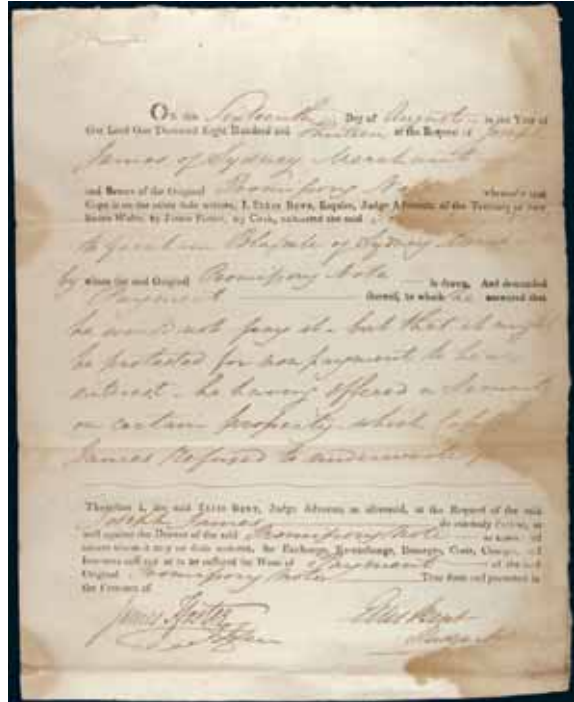 ON this Sixteenth Day of August in the Year of
Our Lord One Thousand Eight Hundred and thirteen at the Request of Joseph
James of Sydney Merchant
and Bearer of the Original Promissory No whereof a true
Copy is on the other side written, I, ELLIS BENT, Esquire, Judge Advocate of the Territory of New
South Wales, by James Foster, my Clerk, exhibited the said
to Blaxcell of Sydney
by whom the said Original Promissory Note is drawn, And demanded
Payment thereof, to which he answered that
he would not pay it but that it might
be protested for non payment to bear
interest he having offered a Security
on certain property which
James refused to underwrite
Therefore I, the said ELLIS BENT, Judge Advocate as aforesaid, at the Request of the said
Joseph James do solemnly Protest, as
well against the Drawer of the said Promissory Note as against all
others whom it may or doth concern, for Exchange, Re-exchange, Damages, Costs, Charges, and
Interests suffered or to be suffered for Want of Payment of the said
Original Promissory Note Thus done and protested in
the Presence of
James Foster Ellis Bent